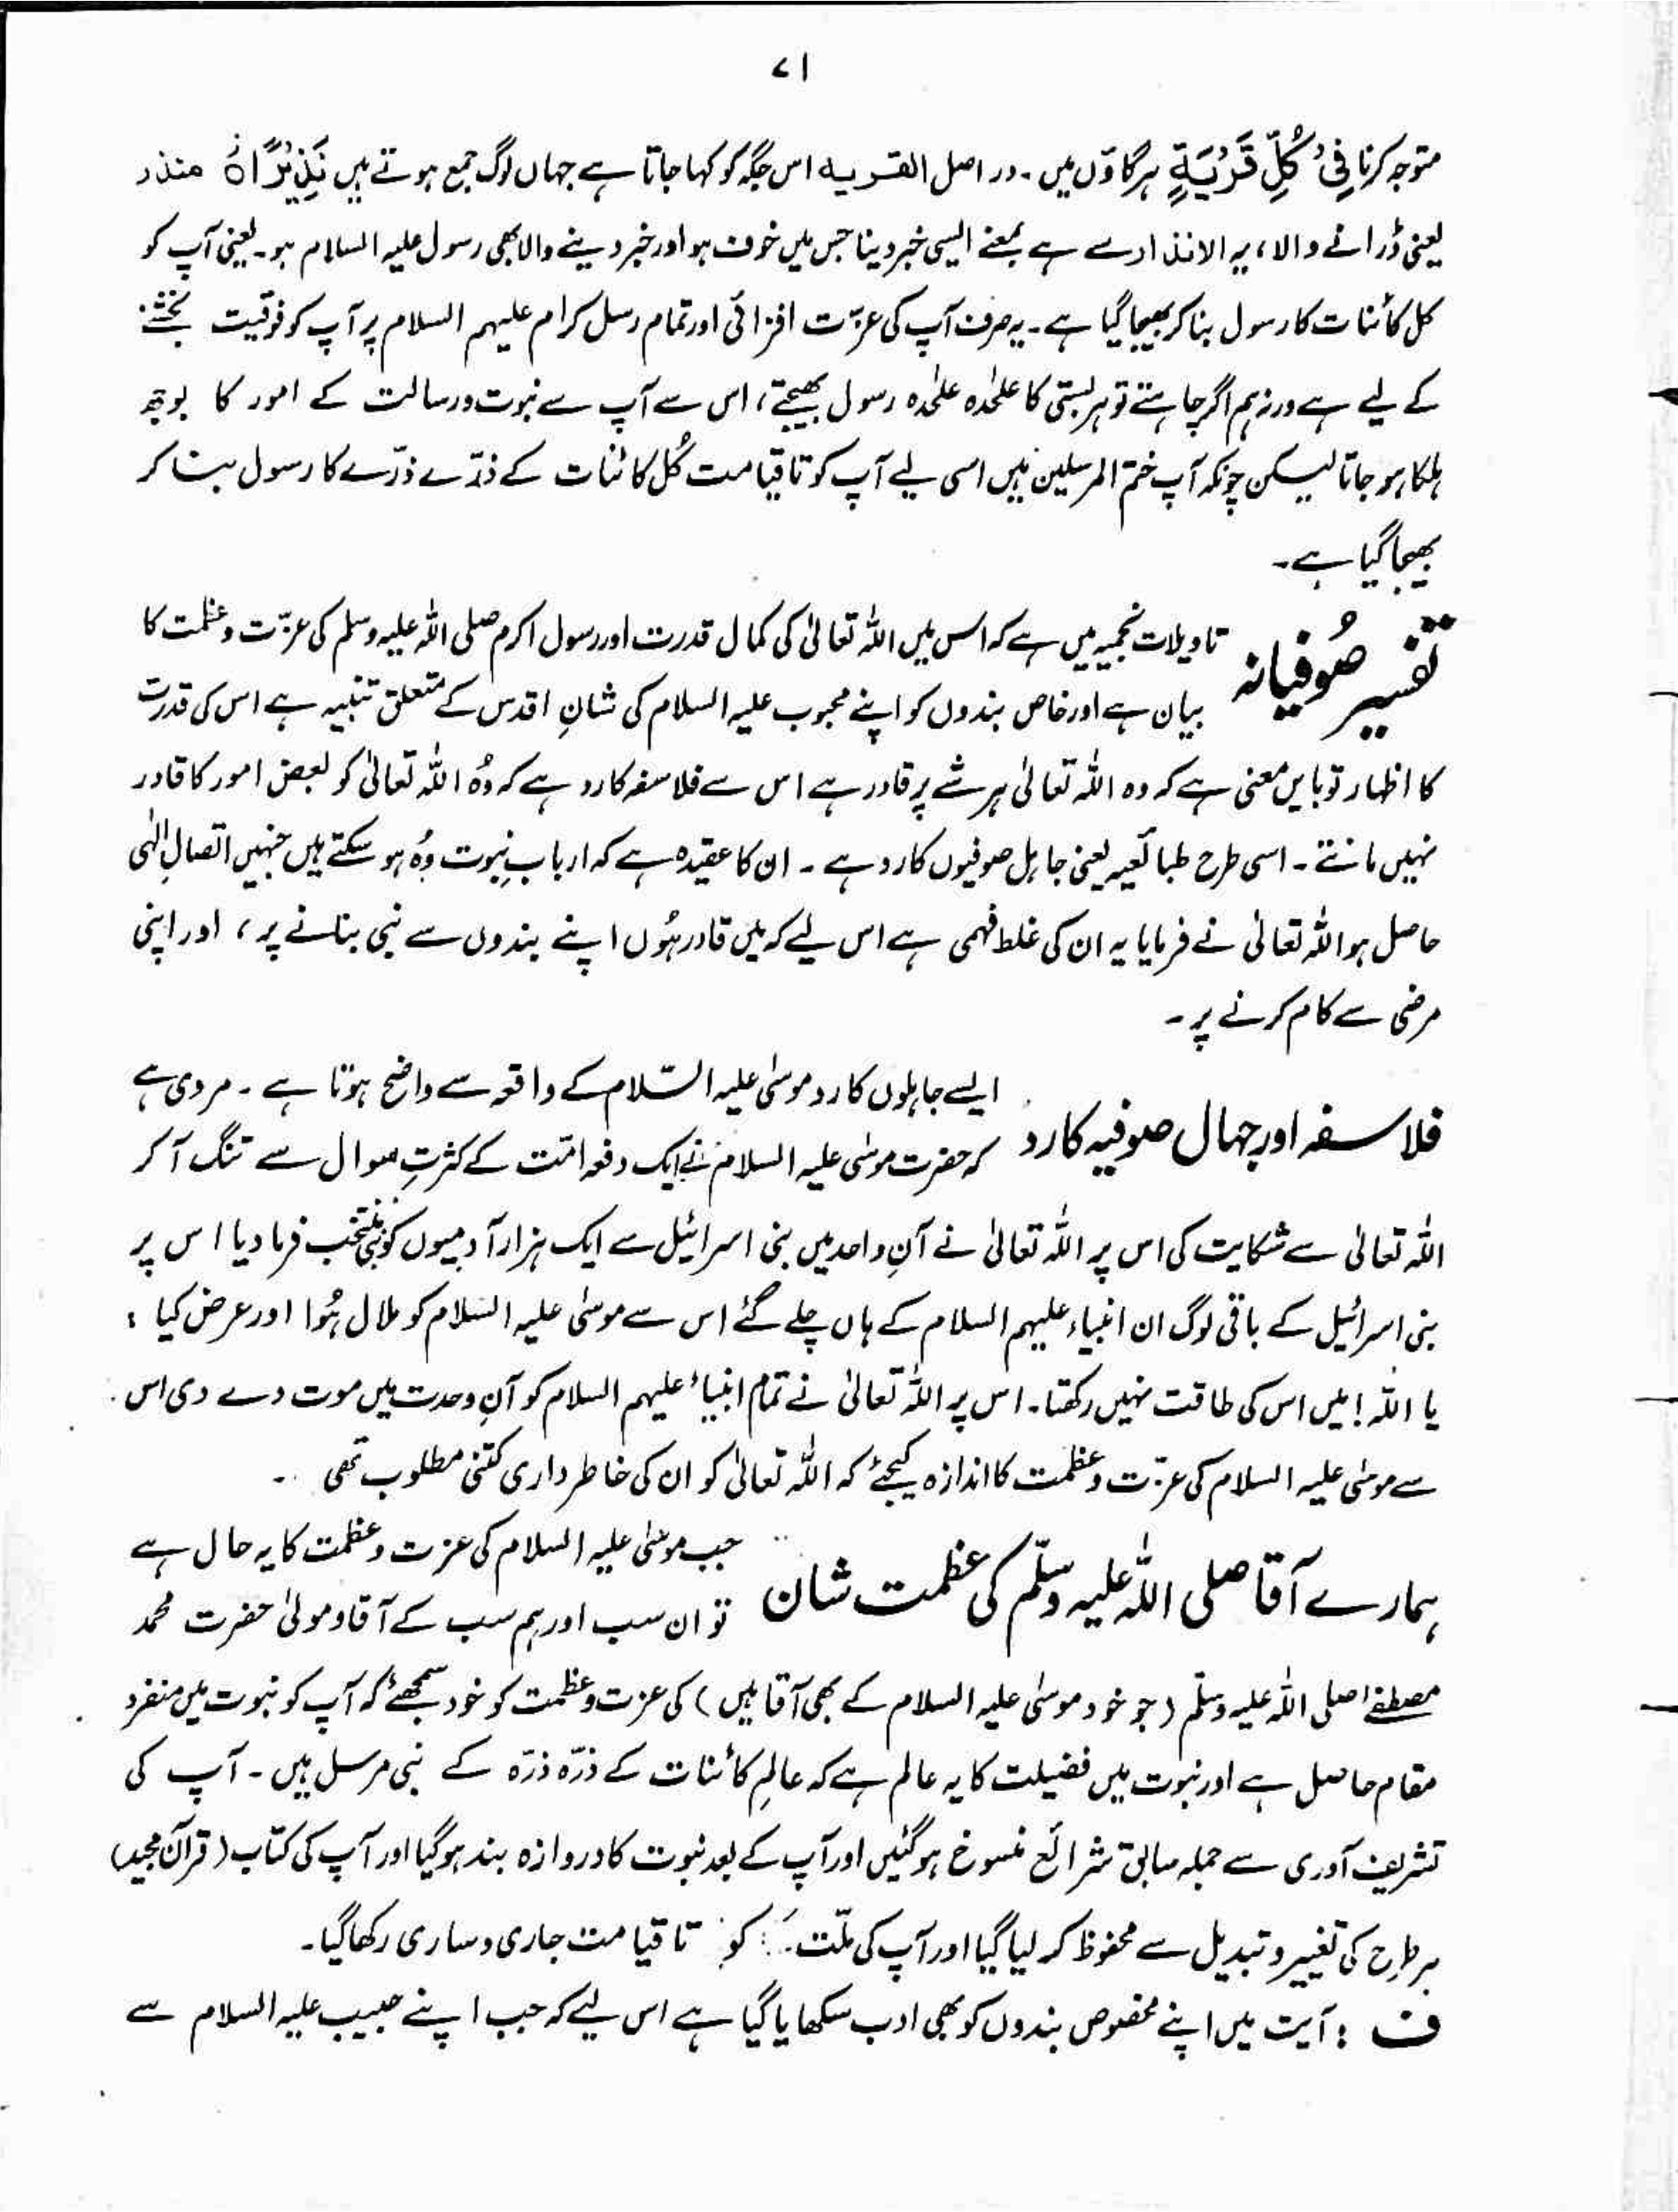 ۷۱
متوجہ کرنا فِیْ کُلِّ قَرْیَۃٍ ہر گاؤں میں ۔ در اصل القریہ اس جگہ کو کہا جاتا ہے جہاں لوگ جمع ہوتے ہیں نَذِیْرًا ۝ منذر
یعنی ڈرانے والا ، یہ الانذار سے ہے بمعنے ایسی خبر دینا جس میں خوف ہو اور خبر دینے والا بھی رسول علیہ السلام ہو ۔ یعنی آپ کو
کل کائنات کا رسول بنا کر بھیجا گیا ہے ۔ یہ صرف آپ کی عزّت افزائی اور تمام رسل کرام علیہم السلام پر آپ کو فوقیت بخشنے
کے لیے ہے ورنہ ہم اگر چاہتے تو ہر بستی کا علٰحدہ علٰحدہ رسول بھیجتے ، اس سے آپ سے نبوت و رسالت کے امور کا بوجھ
ہلکا ہو جاتا لیکن چونکہ آپ ختم المرسلین ہیں اسی لیے آپ کو تا قیامت کُل کائنات کے ذرّے ذرّے کا رسول بنا کر
بھیجا گیا ہے ۔
تفسیر صُوفیانہ
تاویلات نجمیہ میں ہے کہ اس میں اللہ تعالیٰ کی کمال قدرت اور رسول اکرم صلی اللہ علیہ وسلم کی عزّت و عظمت کا
بیان ہے اور خاص بندوں کو اپنے محبوب علیہ السلام کی شانِ اقدس کے متعلق تنبیہ ہے اس کی قدرت
کا اظہار تو بایں معنی ہے کہ وہ اللہ تعالیٰ ہر شے پر قادر ہے اس سے فلاسفہ کا رد ہے کہ وُہ اللہ تعالیٰ کو بعض امور کا قادر
نہیں مانتے ۔ اسی طرح طبائعیہ یعنی جاہل صوفیوں کا رد ہے ۔ ان کا عقیدہ ہے کہ اربابِ نبوت وُہ ہو سکتے ہیں جنہیں اتصالِ الٰہی
حاصل ہو اللہ تعالیٰ نے فرمایا یہ ان کی غلط فہمی ہے اس لیے کہ میں قادر ہُوں اپنے بندوں سے نبی بنانے پر ، اور اپنی
مرضی سے کام کرنے پر ۔
فلاسفہ اور جہال صوفیہ کا رد
ایسے جاہلوں کا رد موسٰی علیہ السّلام کے واقعہ سے واضح ہوتا ہے ۔ مروی ہے
کہ حضرت موسٰی علیہ السلام نے ایک دفعہ امّت کے کثرتِ سوال سے تنگ آ کر
اللہ تعالیٰ سے شکایت کی اس پر اللہ تعالیٰ نے آنِ واحد میں بنی اسرائیل سے ایک ہزار آدمیوں کو نبی منتخب فرما دیا اس پر
بنی اسرائیل کے باقی لوگ ان انبیاء علیہم السلام کے ہاں چلے گئے اس سے موسٰی علیہ السلام کو ملال ہُوا اور عرض کیا :
یا اللہ ! میں اس کی طاقت نہیں رکھتا ۔ اس پر اللہ تعالیٰ نے تمام انبیاء علیہم السلام کو آنِ وحدت میں موت دے دی اس
سے موسٰی علیہ السلام کی عزّت و عظمت کا اندازہ کیجئے کہ اللہ تعالیٰ کو ان کی خاطر داری کتنی مطلوب تھی ۔
ہمارے آقا صلی اللہ علیہ وسلّم کی عظمت شان
جب موسٰی علیہ السلام کی عزت و عظمت کا یہ حال ہے
تو ان سب اور ہم سب کے آقا و مولیٰ حضرت محمد
مصطفےٰ صلی اللہ علیہ وسلّم ( جو خود موسٰی علیہ السلام کے بھی آقا ہیں ) کی عزت و عظمت کو خود سمجھئے کہ آپ کو نبوت میں منفرد
مقام حاصل ہے اور نبوت میں فضیلت کا یہ عالم ہے کہ عالمِ کائنات کے ذرّہ ذرّہ کے نبی مرسل ہیں ۔ آپ کی
تشریف آوری سے جملہ سابق شرائع منسوخ ہو گئیں اور آپ کے بعد نبوت کا دروازہ بند ہو گیا اور آپ کی کتاب ( قرآن مجید )
ہر طرح کی تغییر و تبدیل سے محفوظ کر لیا گیا اور آپ کی ملّت کو تا قیامت جاری و ساری رکھا گیا ۔
ف : آیت میں اپنے مخصوص بندوں کو بھی ادب سکھایا گیا ہے اس لیے کہ جب اپنے حبیب علیہ السلام سے